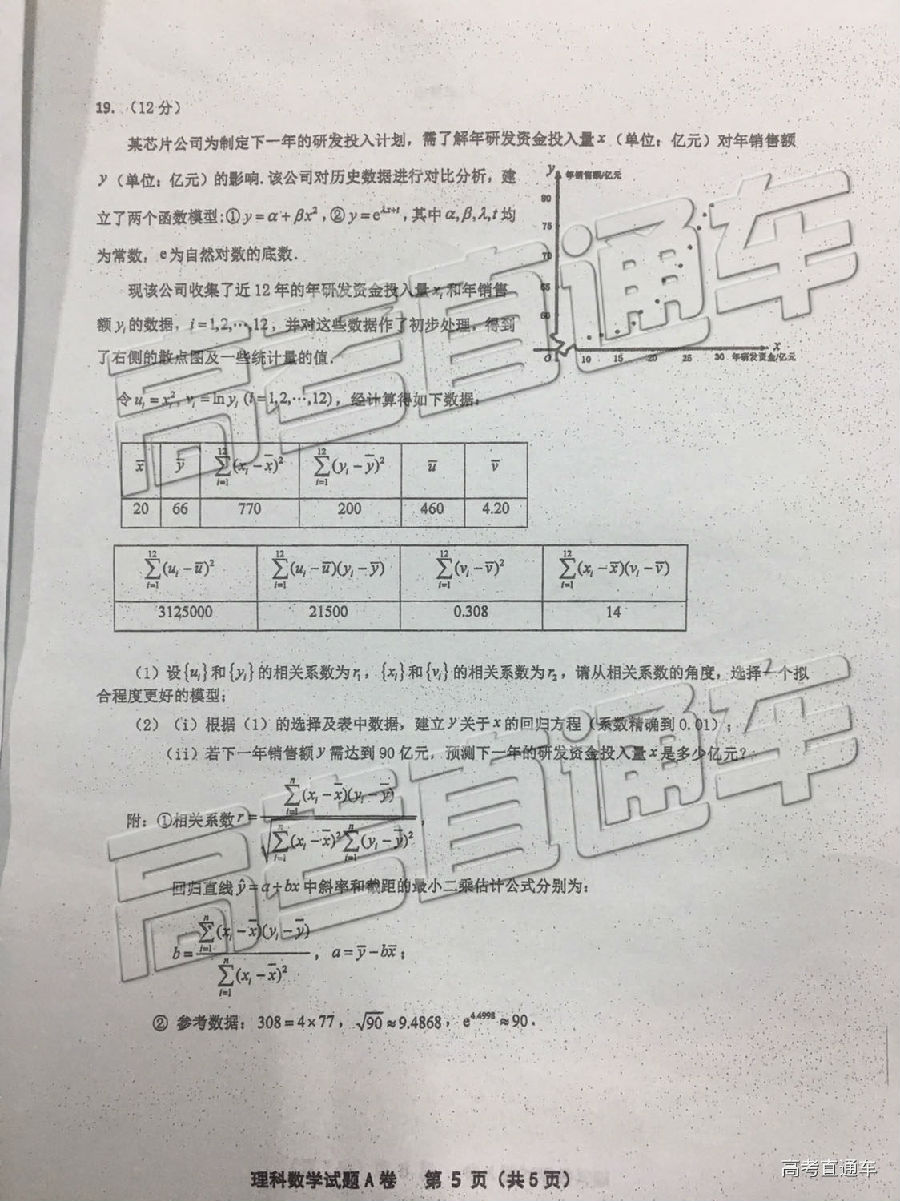 19.（12分）
某芯片公司为制定下一年的研发投入计划，需了解年研发资金投入量 x（单位：亿元）对年销售额
y（单位：亿元）的影响.该公司对历史数据进行对比分析，建
立了两个函数模型:① y=α+βx²，② y=e^{λx+t}，其中α,β,λ,t均
为常数，e为自然对数的底数．
现该公司收集了近12年的年研发资金投入量 x_i 和年销售
额 y_i 的数据，i=1,2,⋯,12，并对这些数据作了初步处理，得到
了右侧的散点图及一些统计量的值．
y 年销售额/亿元
80
75
70
65
60
O 10 15 20 25 30 x 年研发资金/亿元
令 u_i=x_i², v_i=ln y_i (i=1,2,⋯,12)，经计算得如下数据：
x̄ ȳ ∑_{i=1}^{12}(x_i-x̄)² ∑_{i=1}^{12}(y_i-ȳ)² ū v̄
20 66 770 200 460 4.20
∑_{i=1}^{12}(u_i-ū)² ∑_{i=1}^{12}(u_i-ū)(y_i-ȳ) ∑_{i=1}^{12}(v_i-v̄)² ∑_{i=1}^{12}(x_i-x̄)(v_i-v̄)
3125000 21500 0.308 14
（1）设{u_i}和{y_i}的相关系数为r₁，{x_i}和{v_i}的相关系数为r₂，请从相关系数的角度，选择一个拟
合程度更好的模型；
（2）（i）根据（1）的选择及表中数据，建立 y 关于 x 的回归方程（系数精确到0.01）；
（ii）若下一年销售额 y 需达到90亿元，预测下一年的研发资金投入量 x 是多少亿元？
附：①相关系数 r=∑_{i=1}^{n}(x_i-x̄)(y_i-ȳ)/√(∑_{i=1}^{n}(x_i-x̄)²∑_{i=1}^{n}(y_i-ȳ)²)，
回归直线 ŷ=a+bx 中斜率和截距的最小二乘估计公式分别为：
b=∑_{i=1}^{n}(x_i-x̄)(y_i-ȳ)/∑_{i=1}^{n}(x_i-x̄)²，a=ȳ-bx̄；
② 参考数据：308=4×77，√90≈9.4868，e^{4.4998}≈90．
理科数学试题A卷 第 5 页（共6页）
高考直通车
高考直通车
高考直通车